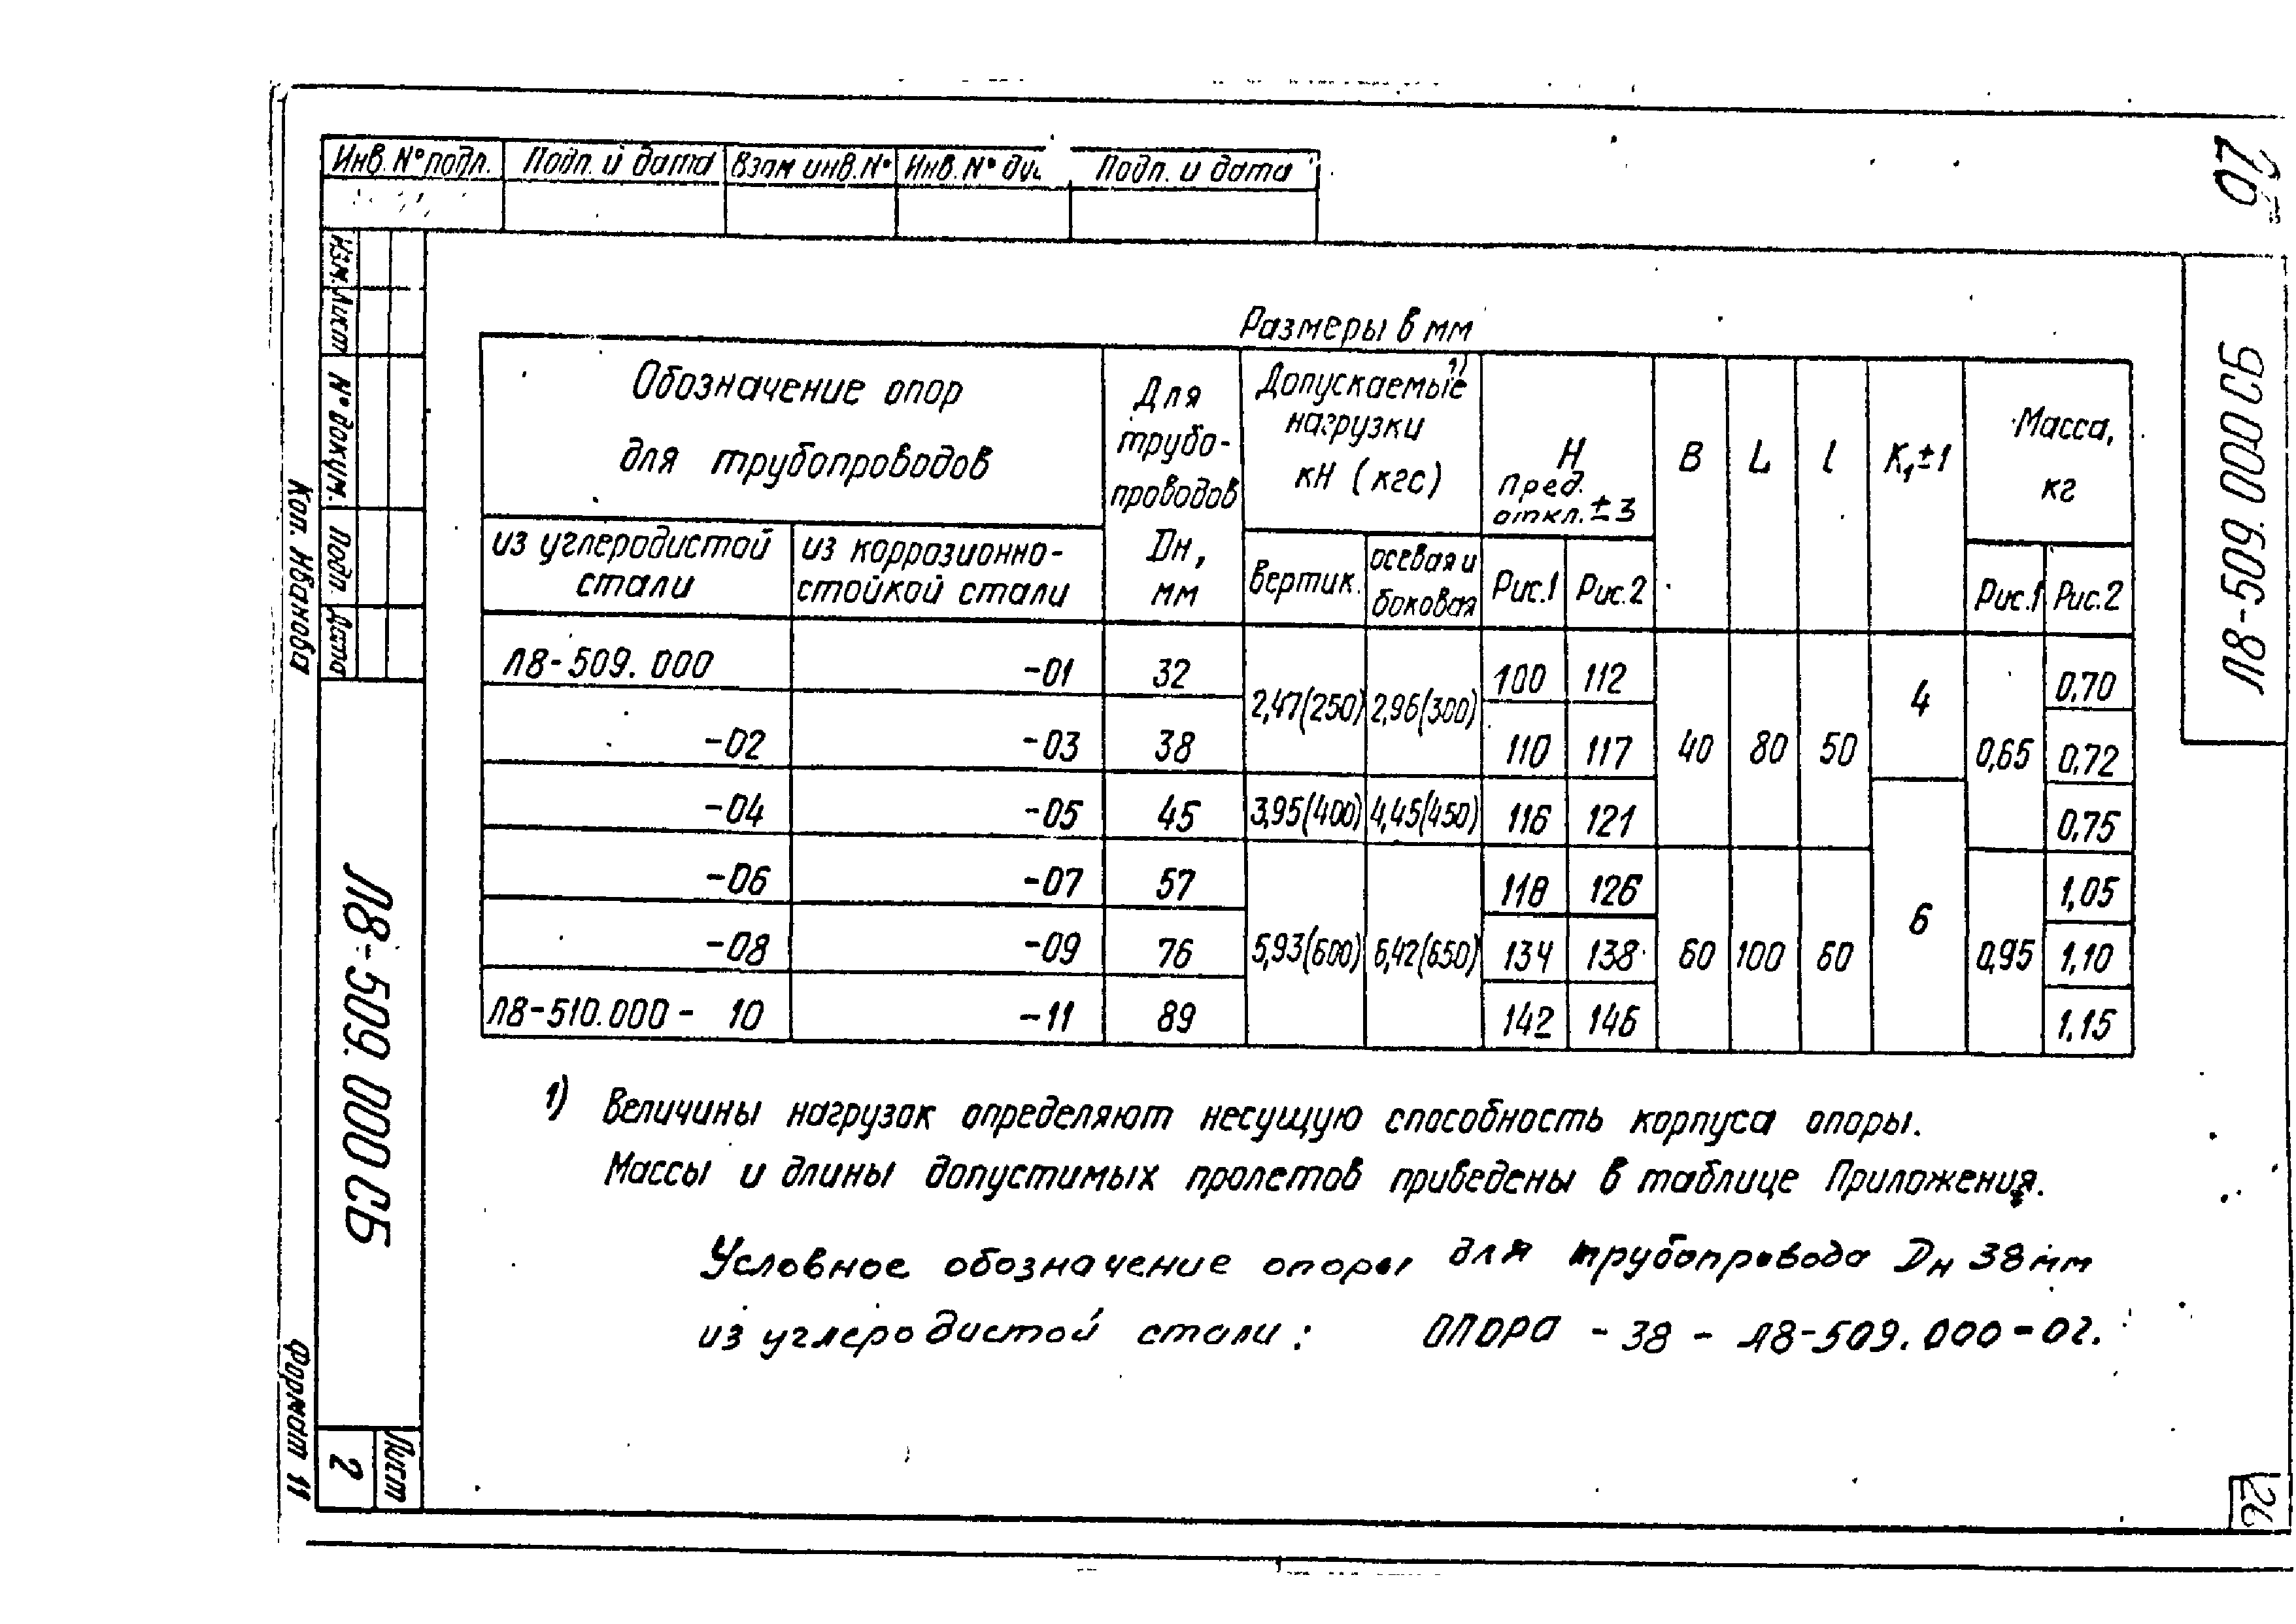 Инв. № подл. Подп. и дата Взам инв. № Инв. № Подп. и дата
20
Изм. Лист № докум. Подп. Дата
Коп. Иванова
Л8-509.000 СБ
Размеры в мм
Обозначение опор для трубопроводов
Для трубопроводов Dн, мм
Допускаемые 1) нагрузки кН (кгс)
Н Пред. откл. ±3
В L l К₁±1
Масса, кг
из углеродистой стали
из коррозионно-стойкой стали
вертик. осевая и боковая
Рис.1 Рис.2 Рис.1 Рис.2
Л8-509.000 -01 32 2,47(250) 2,96(300) 100 112 4 0,70
-02 -03 38 110 117 40 80 50 0,65 0,72
-04 -05 45 3,95(400) 4,45(450) 116 121 0,75
-06 -07 57 118 126 6 1,05
-08 -09 76 5,93(600) 6,42(650) 134 138 60 100 60 0,95 1,10
Л8-510.000 - 10 -11 89 142 146 1,15
1) Величины нагрузок определяют несущую способность корпуса опоры.
Массы и длины допустимых пролетов приведены в таблице Приложения.
Условное обозначение опоры для трубопровода Dн 38 мм
из углеродистой стали: ОПОРА - 38 - Л8-509.000-02.
Л8-509.000 СБ
Лист
2
Формат 11
26